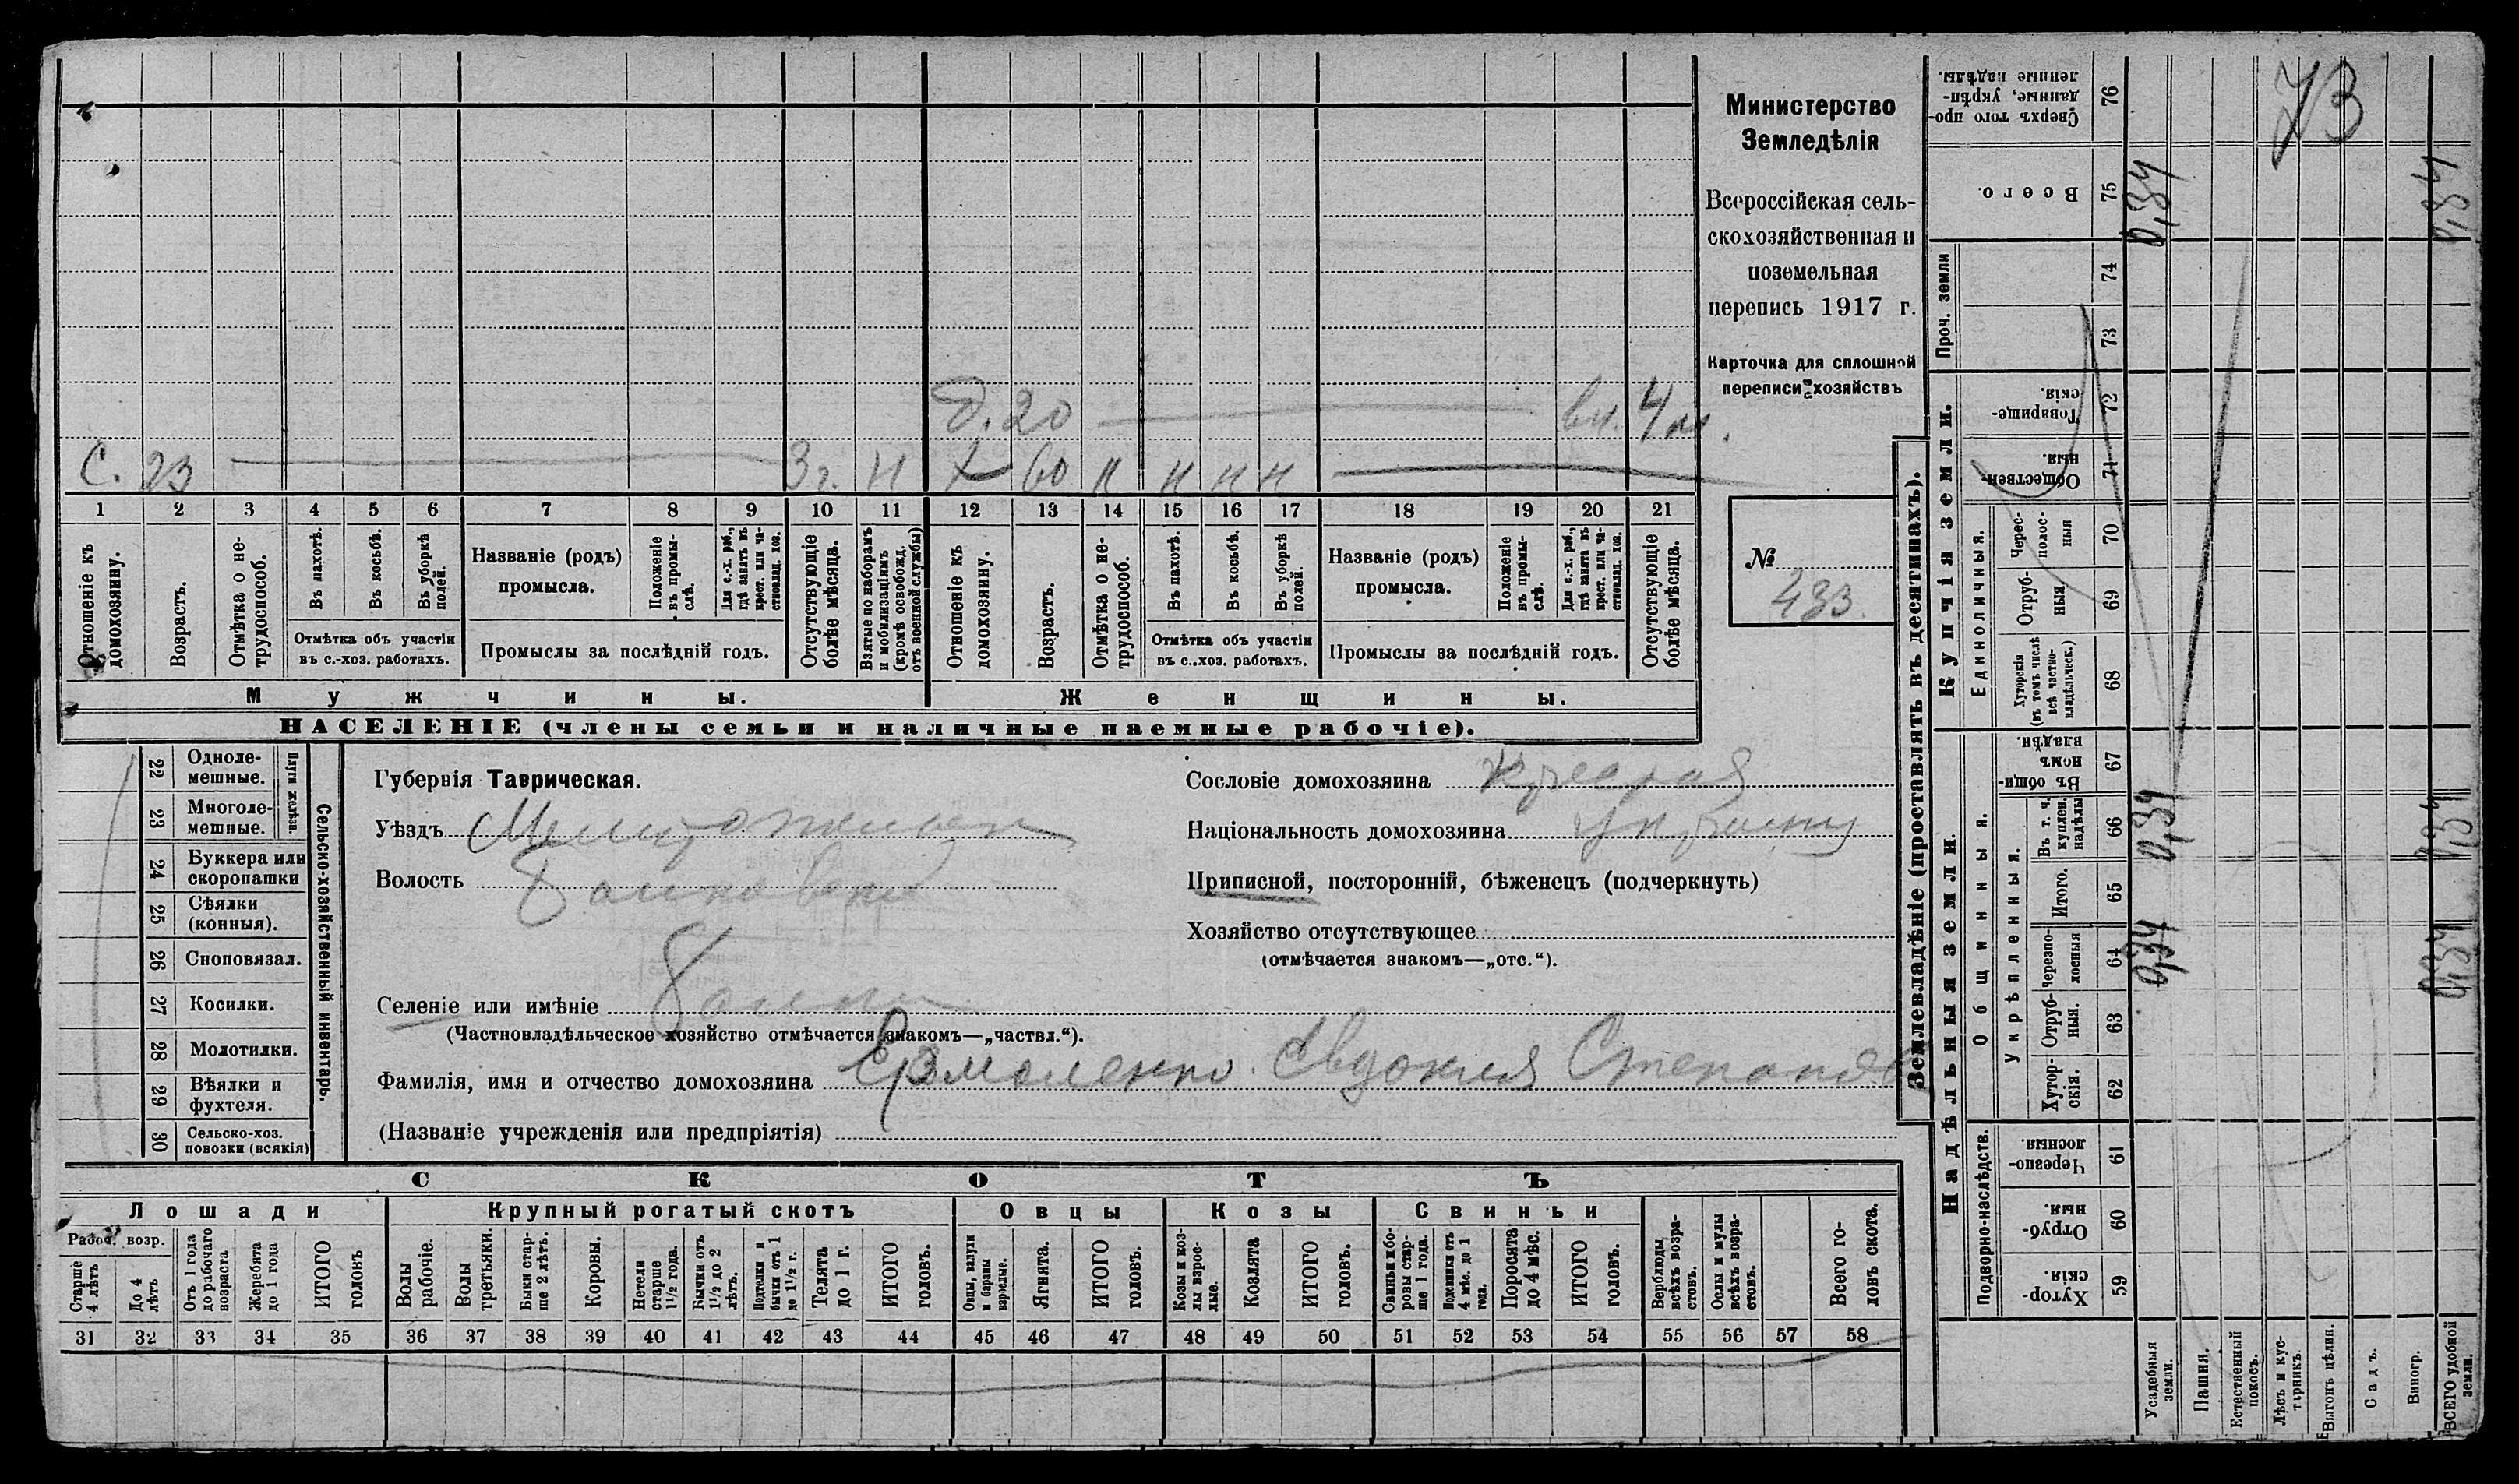 Министерство
Земледѣлія
Всероссійская сель-
скохозяйственная и
поземельная
перепись 1917 г.
Карточка для сплошной
переписи хозяйствъ
№
433.
д. 20 вн. 4 м.
С. 23 3 г. н х 60 н н н н
1 2 3 4 5 6 7 8 9 10 11 12 13 14 15 16 17 18 19 20 21
Отношеніе къ домохозяину.
Возрастъ.
Отмѣтка о не-трудоспособ.
Въ пахотѣ.
Въ косьбѣ.
Въ уборкѣ полей.
Отмѣтка объ участіи
въ с.-хоз. работахъ.
Названіе (родъ)
промысла.
Положеніе въ промы-слѣ.
Для с.-х. раб., гдѣ занятъ въ крест. или ча-стновлад. хоз.
Промыслы за послѣдній годъ.
Отсутствующіе болѣе мѣсяца.
Взятые по наборамъ и мобилизаціямъ (кромѣ освобожд. отъ военной службы)
Отношеніе къ домохозяину.
Возрастъ.
Отмѣтка о не-трудоспособ.
Въ пахотѣ.
Въ косьбѣ.
Въ уборкѣ полей.
Отмѣтка объ участіи
въ с.-хоз. работахъ.
Названіе (родъ)
промысла.
Положеніе въ промы-слѣ.
Для с.-х. раб., гдѣ занятъ въ крест. или ча-стновлад. хоз.
Промыслы за послѣдній годъ.
Отсутствующіе болѣе мѣсяца.
Мужчины. Женщины.
НАСЕЛЕНІЕ (члены семьи и наличные наемные рабочіе).
22 Одноле-мешные.
23 Многоле-мешные.
Плуги желѣзн.
24 Буккера или скоропашки
25 Сѣялки (конныя).
26 Сноповязал.
27 Косилки.
28 Молотилки.
29 Вѣялки и фухтеля.
30 Сельско-хоз. повозки (всякія)
Сельско-хозяйственный инвентарь.
Губернія Таврическая.
Уѣздъ
Волость
Селеніе или имѣніе
(Частновладѣльческое хозяйство отмѣчается знакомъ—„частвл.“).
Фамилія, имя и отчество домохозяина Ермоленко Евдокия Степанов
(Названіе учрежденія или предпріятія)
Сословіе домохозяина
Національность домохозяина
Приписной, посторонній, бѣженецъ (подчеркнуть)
Хозяйство отсутствующее
(отмѣчается знакомъ—„отс.“).
СКОТЪ
Лошади Крупный рогатый скотъ Овцы Козы Свиньи
Рабоч. возр.
Старше 4 лѣтъ
До 4 лѣтъ
Отъ 1 года до рабочаго возраста
Жеребята до 1 года
ИТОГО головъ
Волы рабочіе.
Волы третьяки.
Быки стар-ше 2 лѣтъ.
Коровы.
Нетели старше 1½ года.
Бычки отъ 1½ до 2 лѣтъ.
Подтелки и бычки отъ 1 до 1½ г.
Телята до 1 г.
ИТОГО головъ.
Овцы, валухи и бараны взрослые.
Ягнята.
ИТОГО головъ.
Козы и коз-лы взрос-лые.
Козлята
ИТОГО головъ.
Свиньи и бо-ровы стар-ше 1 года.
Подсвинки отъ 4 мѣс. до 1 года.
Поросята до 4 мѣс.
ИТОГО головъ.
Верблюды всѣхъ возра-стовъ.
Ослы и мулы всѣхъ возра-стовъ.
Всего го-ловъ скота.
31 32 33 34 35 36 37 38 39 40 41 42 43 44 45 46 47 48 49 50 51 52 53 54 55 56 57 58
Землевладѣніе (проставлять въ десятинахъ).
73
Сверхъ того про-данные, укрѣп-ленные надѣлы. 76
Всего. 75 0,34 0,34
Проч. земли 74 73
Купчія земли.
Товарище-скія. 72
Обществен-ныя. 71
Единоличныя.
Черес-полос-ныя 70
Отруб-ныя 69
Хуторскія (въ томъ числѣ всѣ частно-владѣльческ.) 68
Надѣльныя земли.
Общинныя.
Въ общи-номъ владѣн. 67
Укрѣпленныя.
Въ т. ч. куплен. надѣлы 66 0,34 0,34
Итого. 65
Черезпо-лосныя 64 0,34 0,34
Отруб-ныя. 63
Хутор-скія. 62
Подворно-наслѣдств.
Черезпо-лосныя. 61
Отруб-ныя. 60
Хутор-скія. 59
Усадебныя земли.
Пашня.
Естественный покосъ.
Лѣсъ и кус-тарникъ.
Выгонъ цѣлин.
Садъ.
Виногр.
ВСЕГО удобной земли.